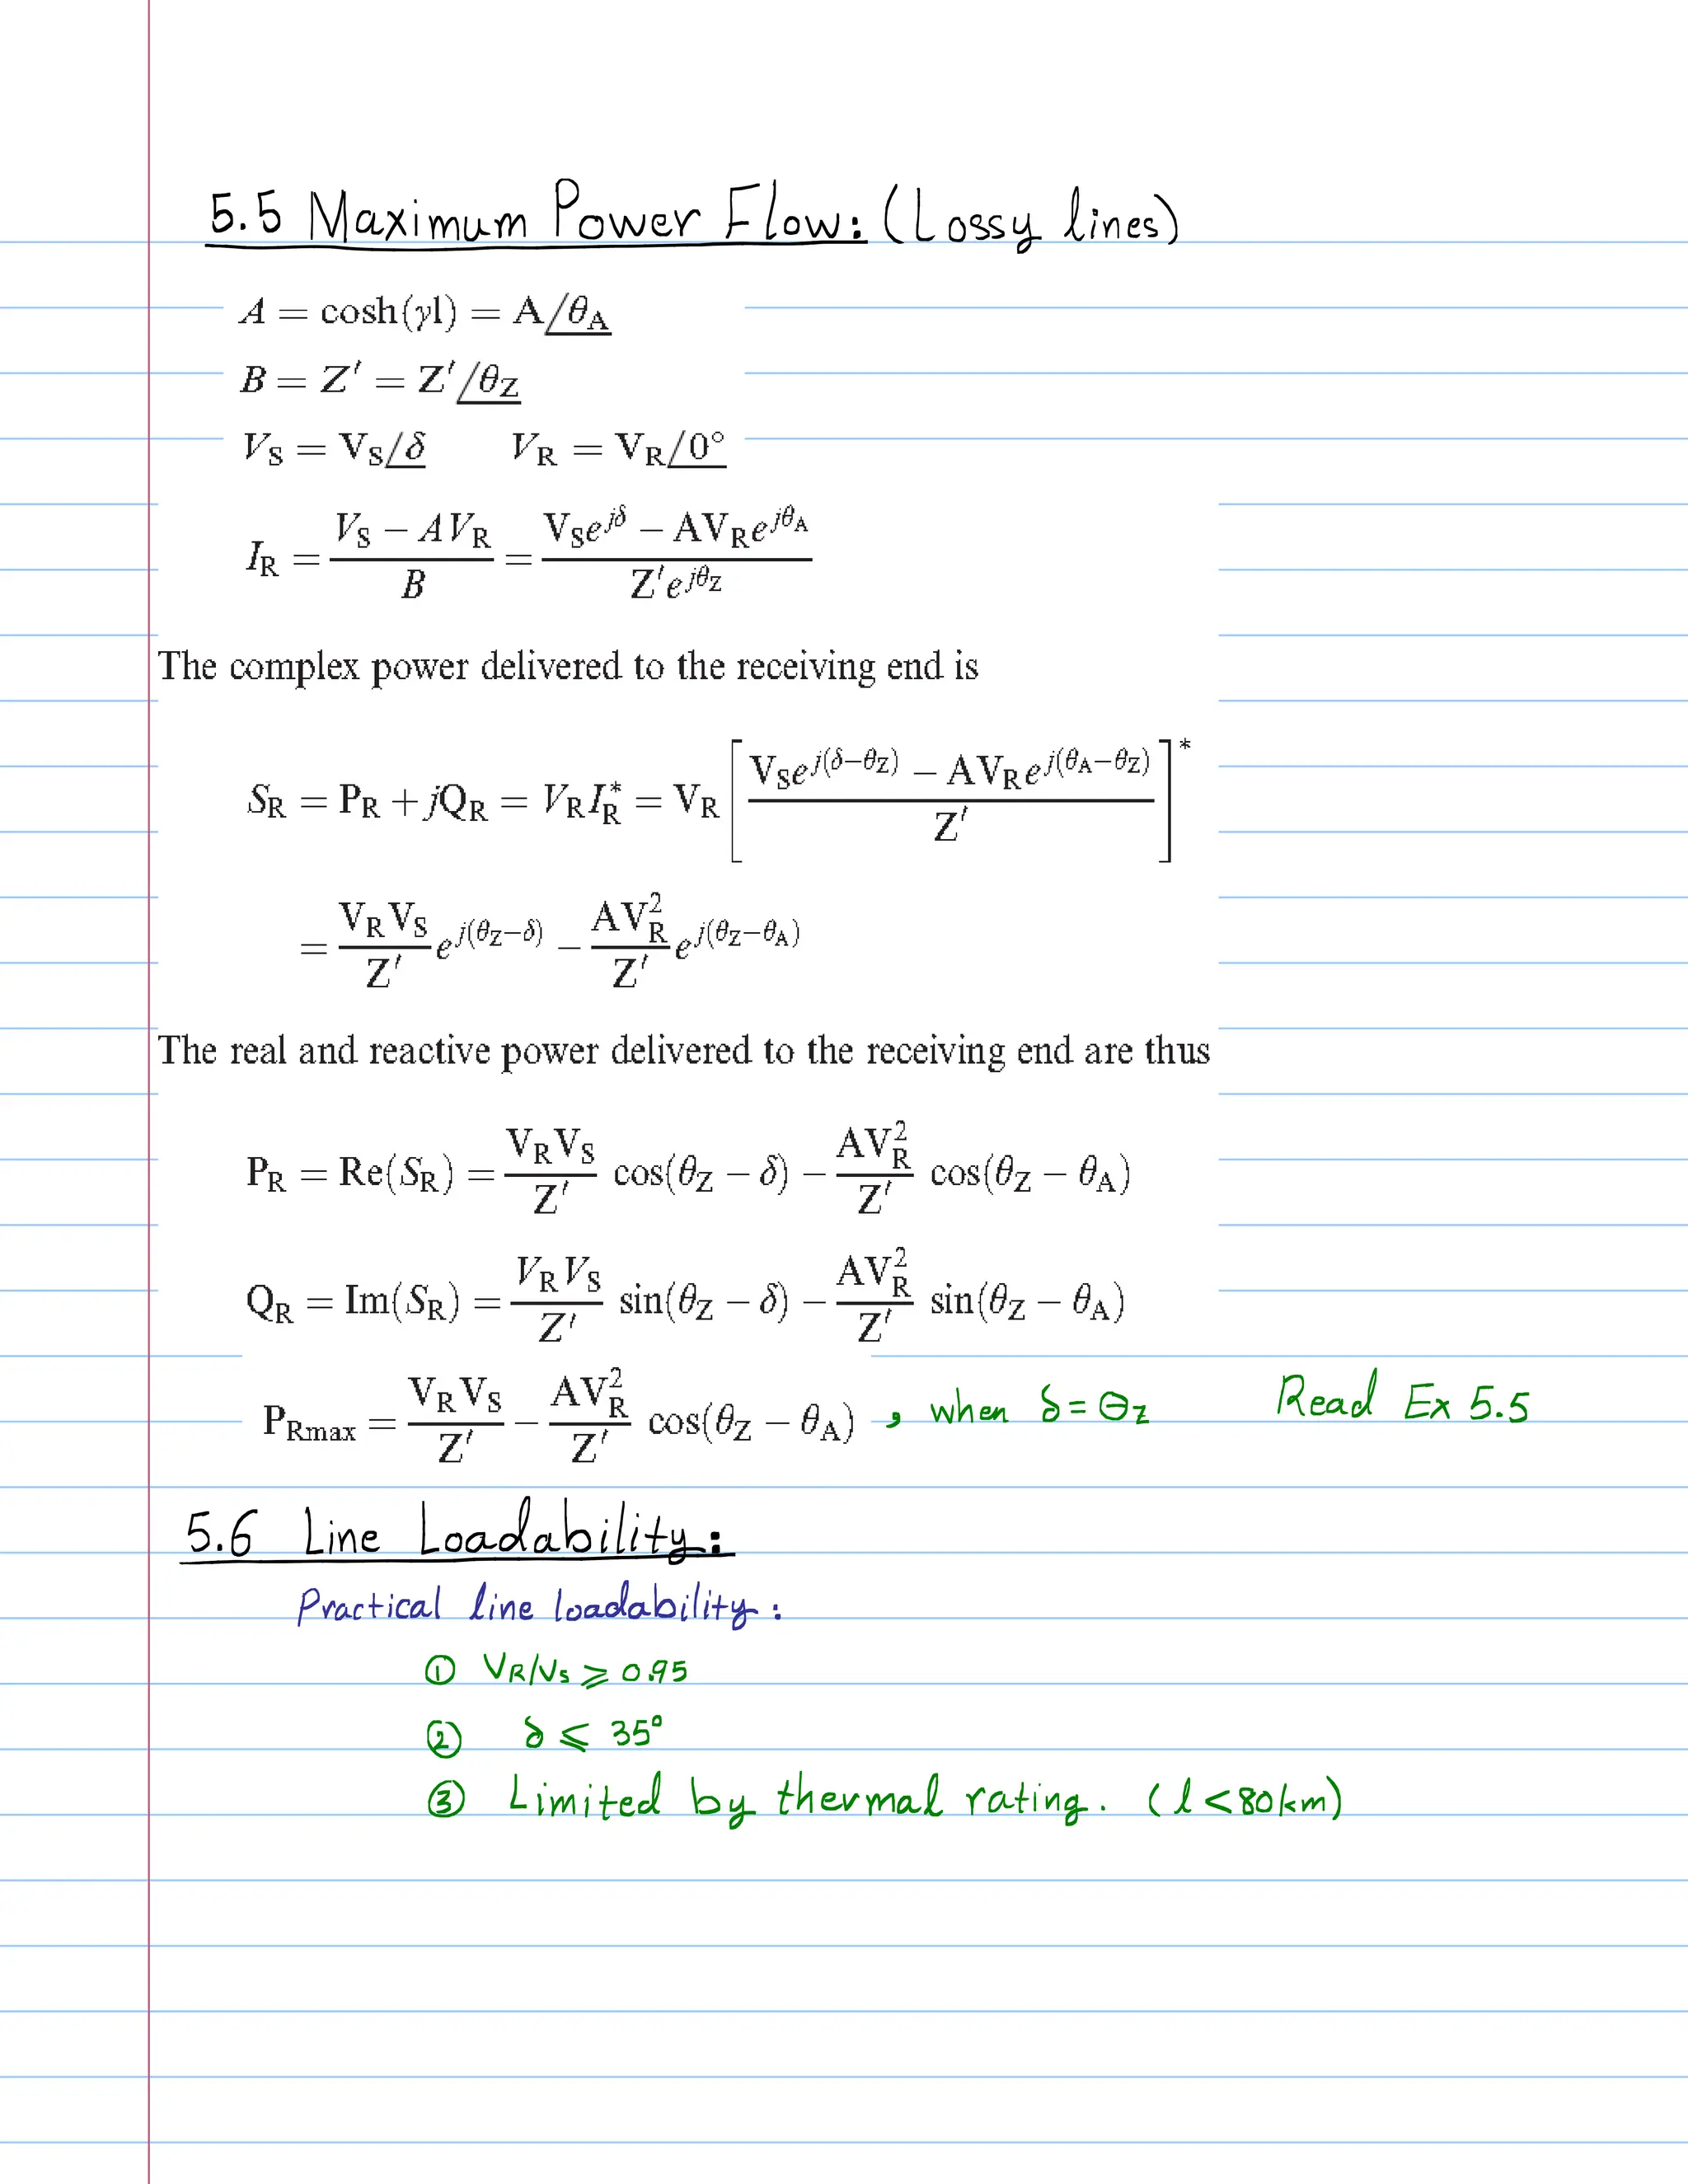 5.5 Maximum Power Flow: (Lossy lines)
A = cosh(γl) = A/θ_A
B = Z′ = Z′/θ_Z
V_S = V_S/δ    V_R = V_R/0°
I_R = (V_S − AV_R)/B = (V_S e^{jδ} − AV_R e^{jθ_A})/(Z′e^{jθ_Z})
The complex power delivered to the receiving end is
S_R = P_R + jQ_R = V_R I_R^* = V_R [(V_S e^{j(δ−θ_Z)} − AV_R e^{j(θ_A−θ_Z)})/Z′]^*
= (V_R V_S/Z′) e^{j(θ_Z−δ)} − (AV_R^2/Z′) e^{j(θ_Z−θ_A)}
The real and reactive power delivered to the receiving end are thus
P_R = Re(S_R) = (V_R V_S/Z′) cos(θ_Z − δ) − (AV_R^2/Z′) cos(θ_Z − θ_A)
Q_R = Im(S_R) = (V_R V_S/Z′) sin(θ_Z − δ) − (AV_R^2/Z′) sin(θ_Z − θ_A)
P_Rmax = V_R V_S/Z′ − (AV_R^2/Z′) cos(θ_Z − θ_A) , when δ = θ_Z    Read Ex 5.5
5.6 Line Loadability:
Practical line loadability :
① V_R/V_S ⩾ 0.95
② δ ⩽ 35°
③ Limited by thermal rating. (l < 80 km)